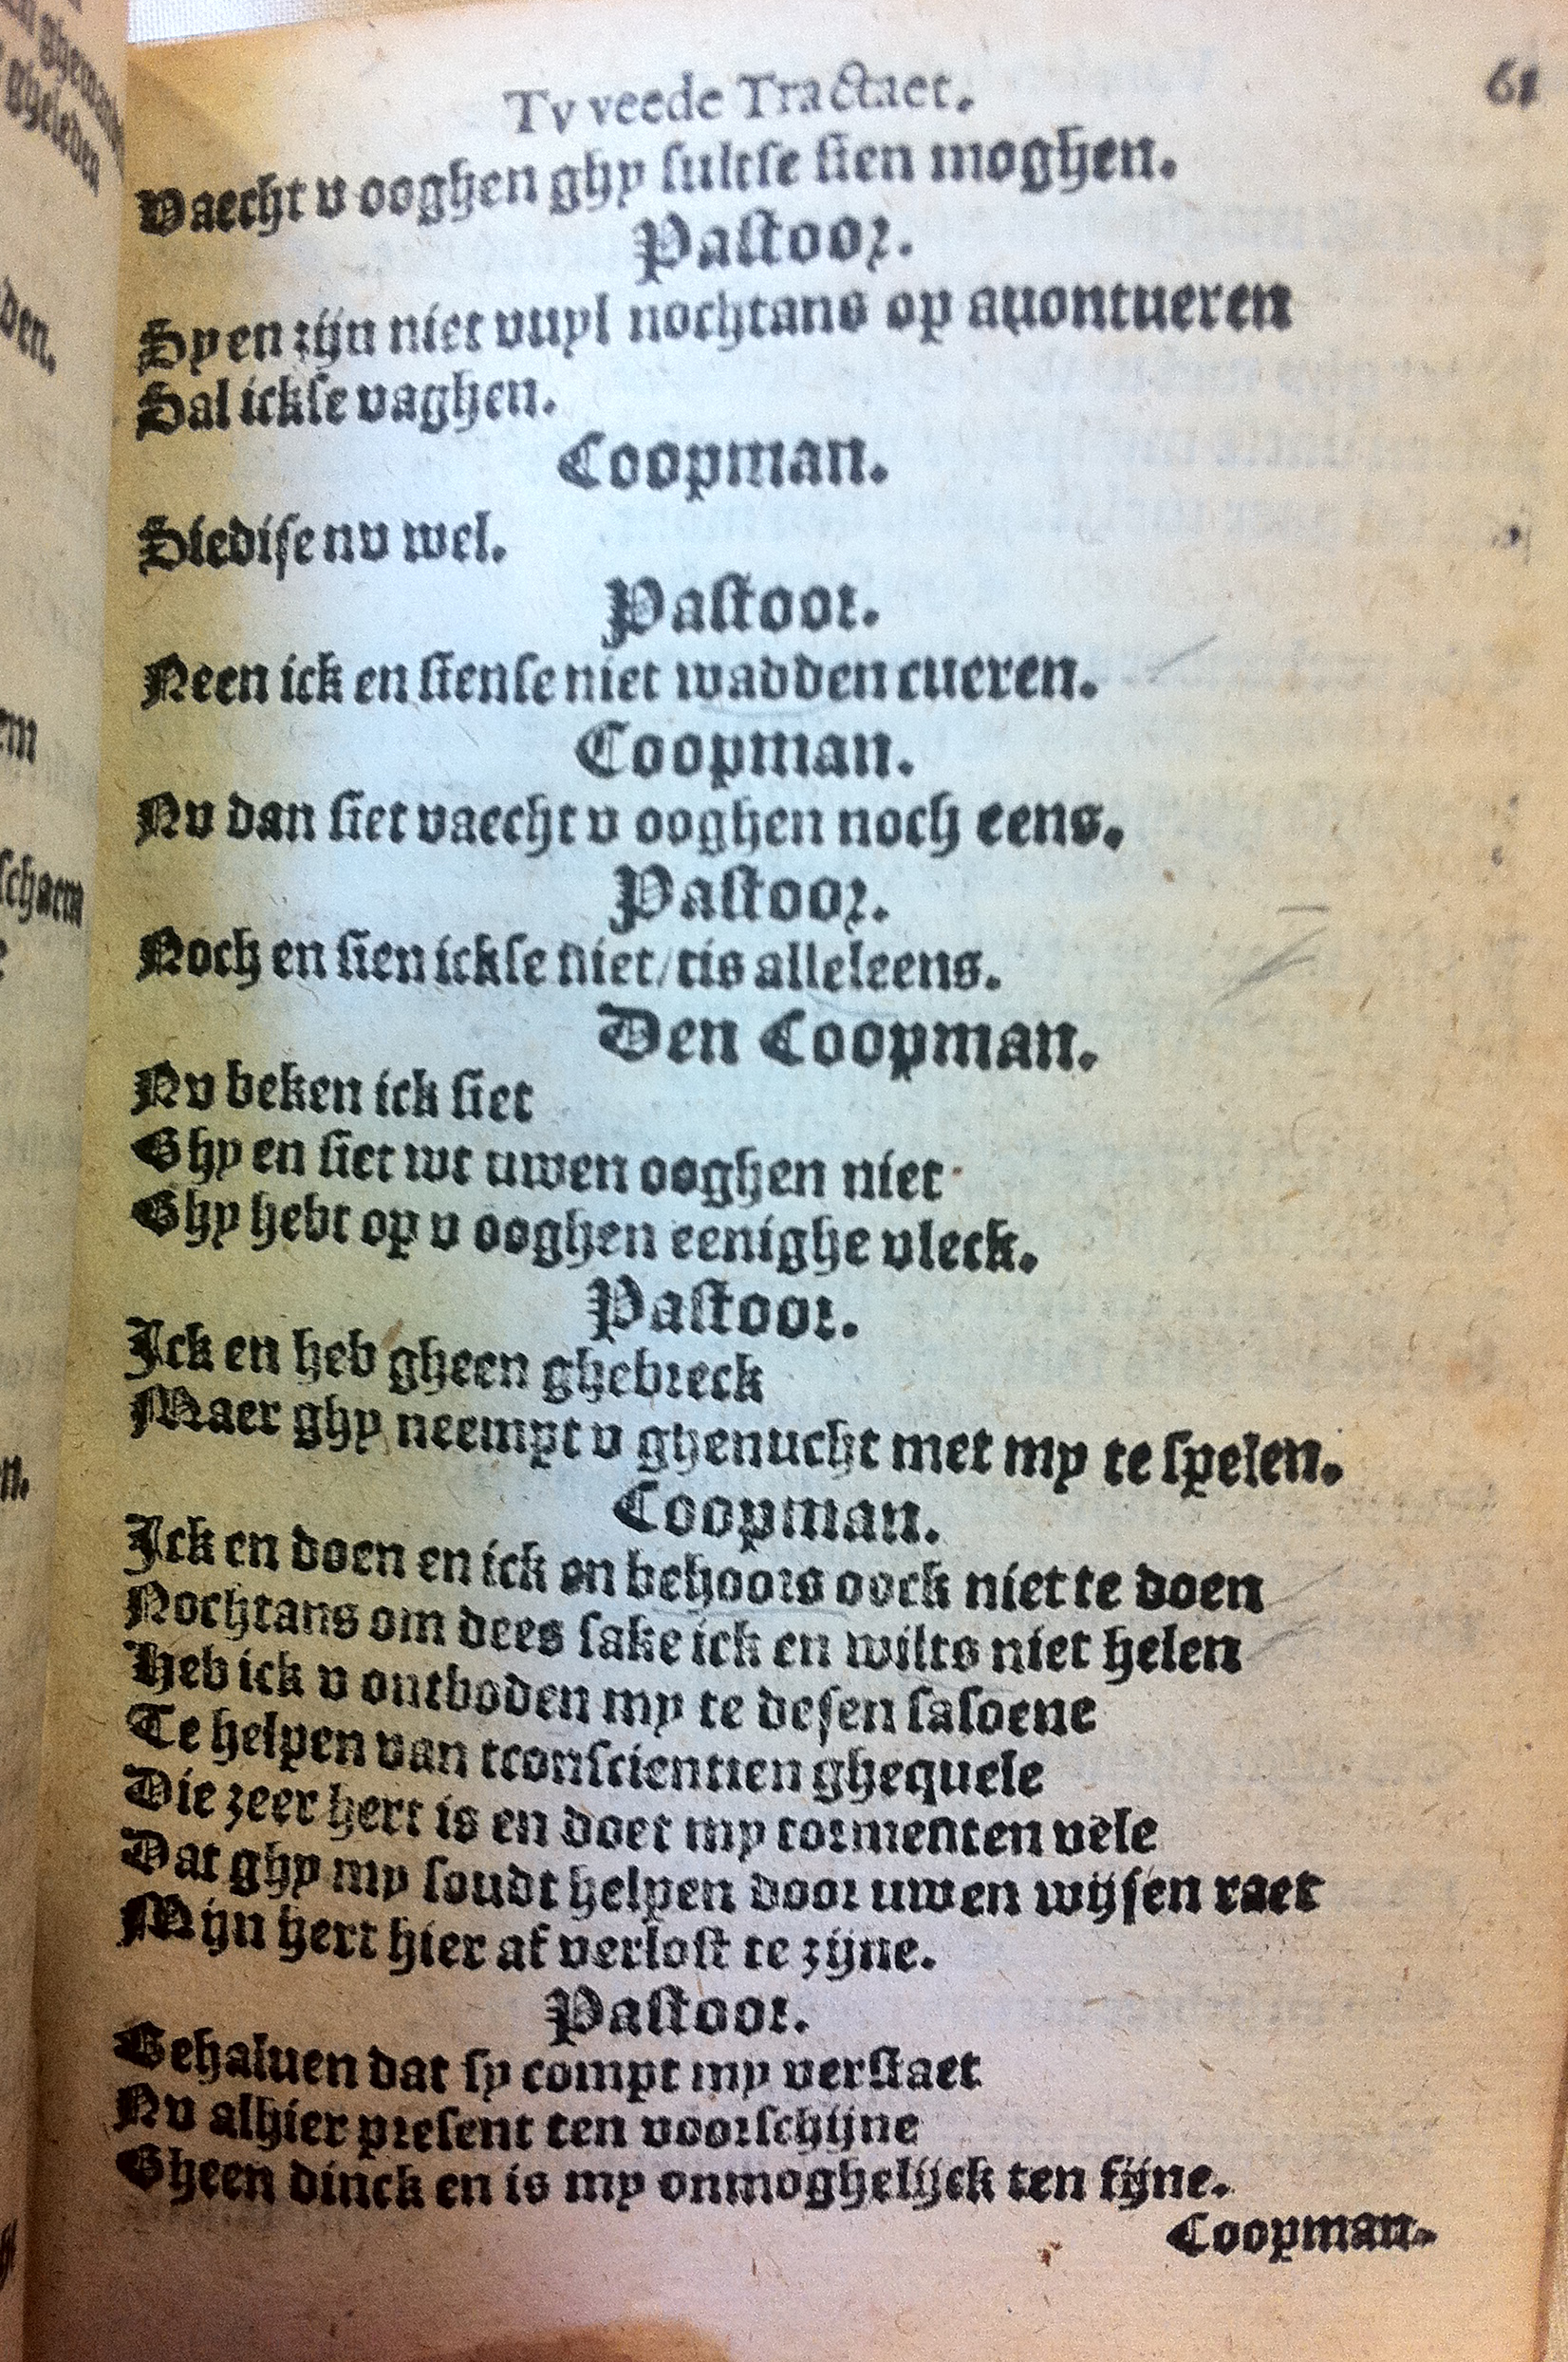 Tvveede Tractaet.
61
Vaecht v ooghen ghy sultse sien moghen.
Pastoor.
Sy en zijn niet vuyl nochtans op auontueren
Sal ickse vaghen.
Coopman.
Siedise nv wel.
Pastoor.
Neen ick en siense niet wadden cueren.
Coopman.
Nv dan siet vaecht v ooghen noch eens.
Pastoor.
Noch en sien ickse niet/tis alleleens.
Den Coopman.
Nv beken ick siet
Ghy en siet wt uwen ooghen niet
Ghy hebt op v ooghen eenighe vleck.
Pastoor.
Ick en heb gheen ghebreck
Maer ghy neempt v ghenucht met my te spelen.
Coopman.
Ick en doen en ick en behoors oock niet te doen
Nochtans om dees sake ick en wilts niet helen
Heb ick v ontboden my te desen sasoene
Te helpen van tconscientien ghequele
Die zeer hert is en doet my tormenten vele
Dat ghy my soudt helpen door uwen wijsen raet
Mijn hert hier af verlost te zijne.
Pastoor.
Behaluen dat sy compt my verstaet
Nv alhier present ten voorschijne
Gheen dinck en is my onmoghelijck ten fijne.
Coopman.